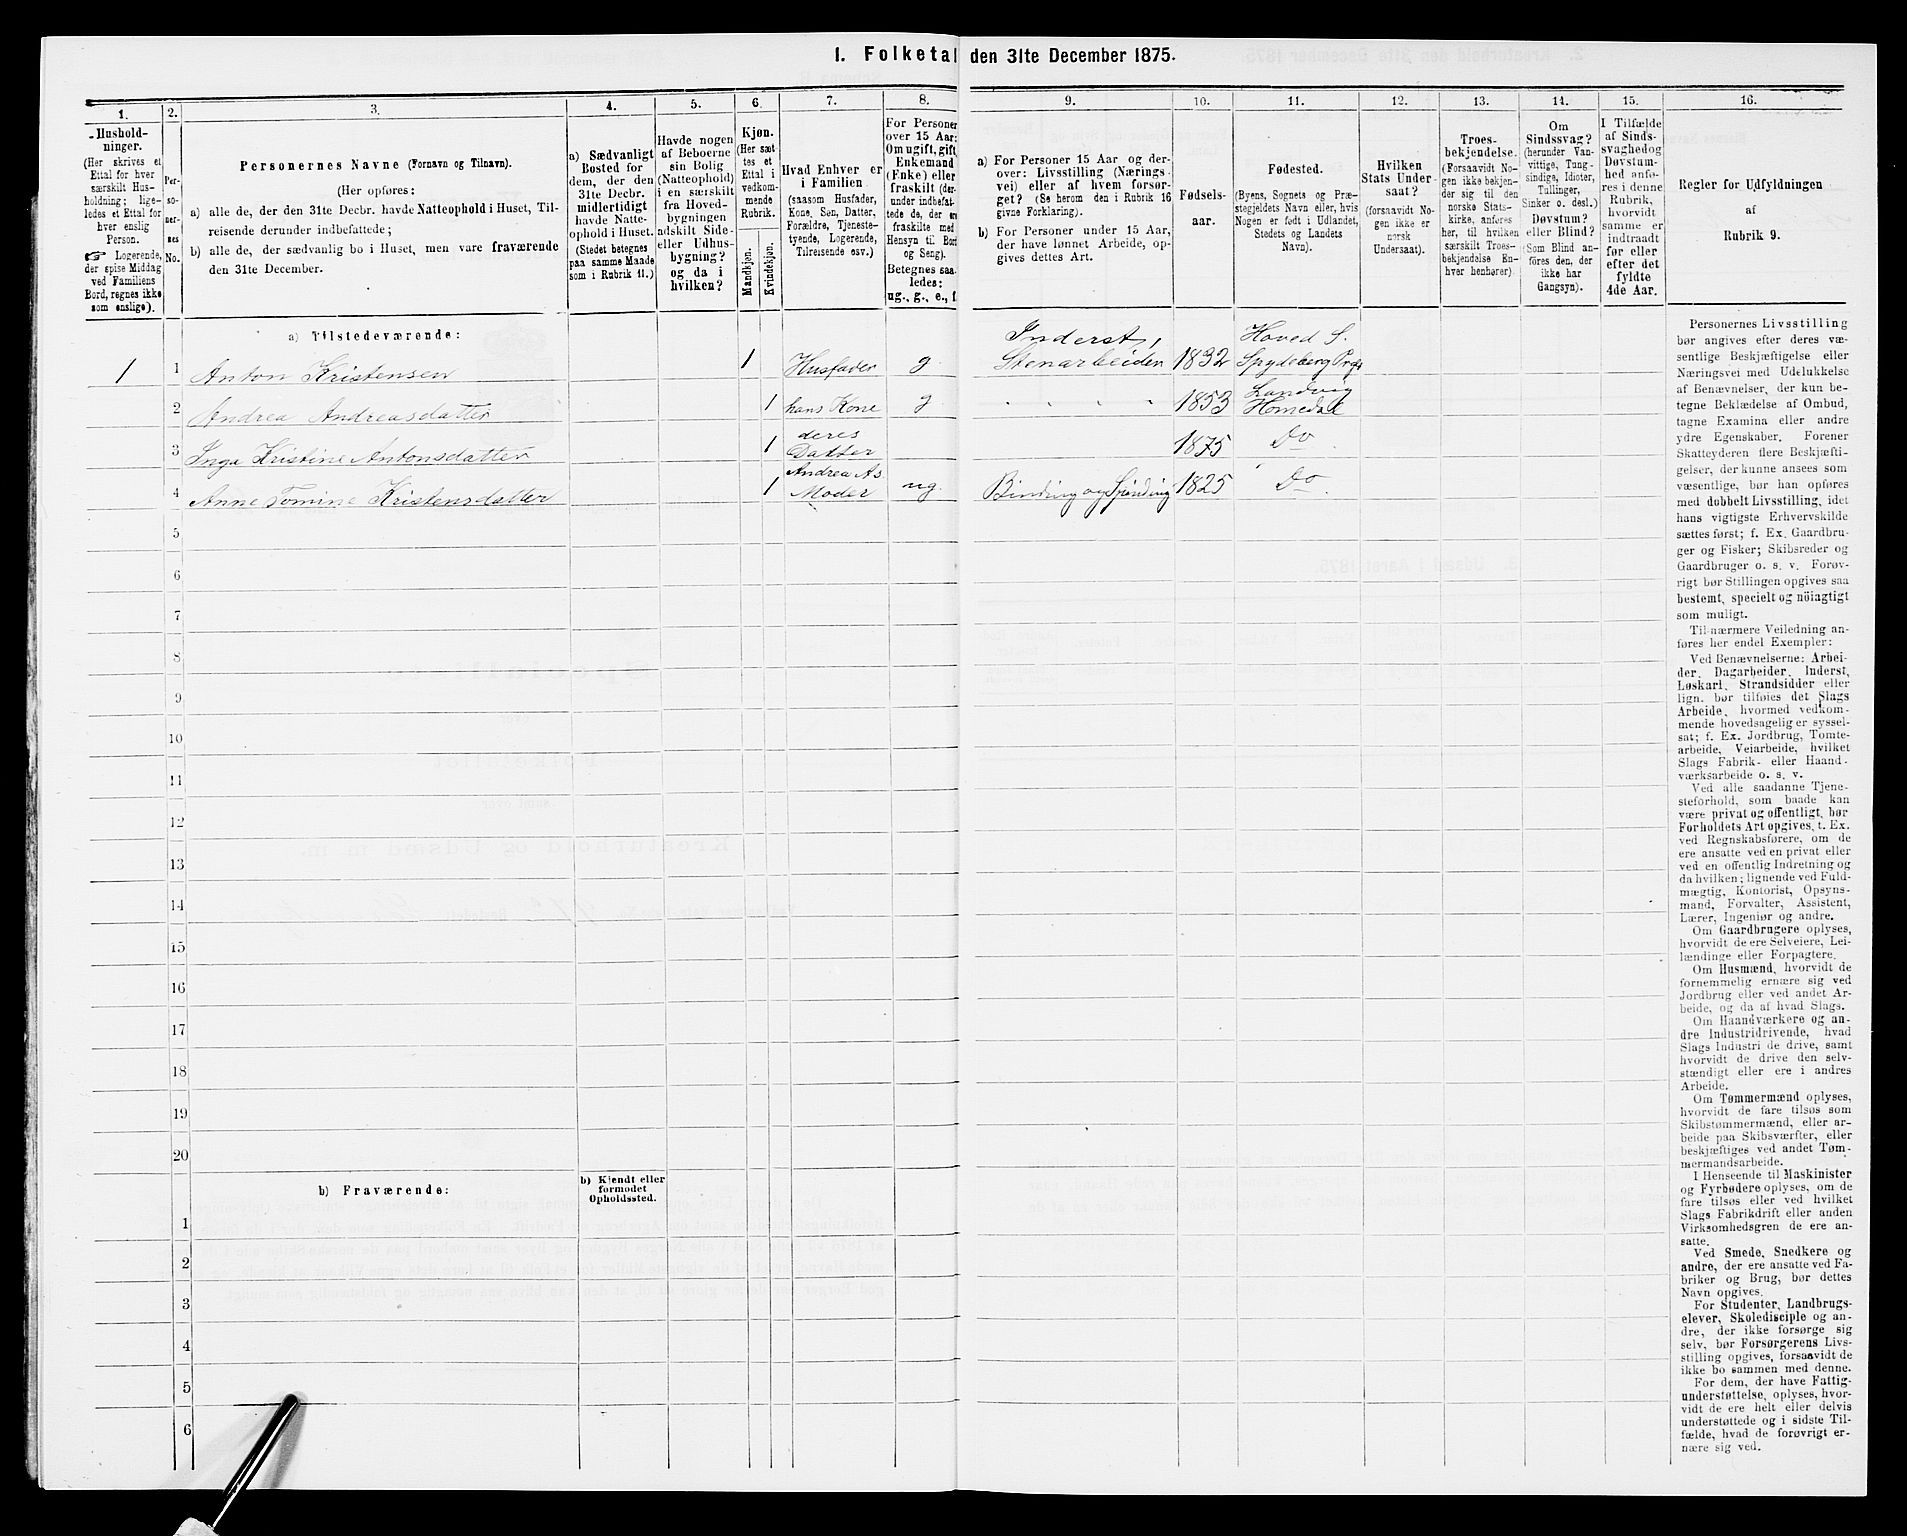 I. Folketal den 31te December 1875.
1.
Hushold-
ninger.
(Her skrives et
Ettal for hver
særskilt Hus-
holdning; lige-
ledes et Ettal for
hver enslig
Person.
☞ Logerende,
der spise Middag
ved Familiens
Bord, regnes ikke
som enslige).
2.
Per-
so-
ner-
nes
No.
3.
Personernes Navne (Fornavn og Tilnavn).
(Her opføres:
a) alle de, der den 31te Decbr. havde Natteophold i Huset, Til-
reisende derunder indbefattede;
b) alle de, der sædvanlig bo i Huset, men vare fraværende
den 31te December.
4.
a) Sædvanligt
Bosted for
dem, der den
31te Decbr.
midlertidigt
havde Natte-
ophold i Huset.
(Stedet betegnes
paa samme Maade
som i Rubrik 11.)
5.
Havde nogen
af Beboerne
sin Bolig
(Natteophold)
i en særskilt
fra Hoved-
bygningen
adskilt Side-
eller Udhus-
bygning?
og da i
hvilken?
6.
Kjøn.
(Her sæt-
tes et
Ettal i
vedkom-
mende
Rubrik.
Mandkjøn.
Kvindekjøn.
7.
Hvad Enhver er
i Familien
(saasom Husfader,
Kone, Søn, Datter,
Forældre, Tjeneste-
tyende, Logerende,
Tilreisende osv.)
8.
For Personer
over 15 Aar:
Om ugift, gift,
Enkemand
(Enke) eller
fraskilt (der-
under indbefat-
tede de, der ere
fraskilte med
Hensyn til Bord
og Seng).
Betegnes saa-
ledes:
ug., g., e., f.
9.
a) For Personer 15 Aar og der-
over: Livsstilling (Nærings-
vei) eller af hvem forsør-
get? (Se herom den i Rubrik 16
givne Forklaring).
b) For Personer under 15 Aar,
der have lønnet Arbeide, op-
gives dettes Art.
10.
Fødsels-
aar.
11.
Fødested.
(Byens, Sognets og Præ-
stegjeldets Navn eller, hvis
Nogen er født i Udlandet,
Stedets og Landets
Navn).
12.
Hvilken
Stats Under-
saat?
(forsaavidt No-
gen ikke er
norsk
Undersaat).
13.
Troes-
bekjendelse.
(Forsaavidt No-
gen ikke bekjen-
der sig til den
norske Stats-
kirke, anføres
her, til hvilken
særskilt Troes-
bekjendelse En-
hver henhører).
14.
Om
Sindssvag?
(herunder Van-
vittige, Tung-
sindige, Idioter,
Tullinger,
Sinker o. desl.)
Døvstum?
eller Blind?
(Som Blind an-
føres den, der
ikke har
Gangsyn).
15.
I Tilfælde
af Sinds-
svaghed og
Døvstum-
hed anfø-
res i denne
Rubrik,
hvorvidt
samme er
indtraadt
før eller
efter det
fyldte
4de Aar.
16.
Regler for Udfyldningen
af
Rubrik 9.
a) Tilstedeværende:
1 1 Anton Kristensen 1 Husfader g Inderst, Stenarbeider 1832 Hoved S. Spydeberg Prgj
2 Andrea Andreasdatter 1 hans Kone g " " " " 1853 Landvig Homedal
3 Inga Kristine Antonsdatter 1 deres Datter 1875 Do
4 Anne Tomine Kristensdatter 1 Andrea As. Moder ug. Binding og Spinding 1825 Do.
5
6
7
8
9
10
11
12
13
14
15
16
17
18
19
20
b) Fraværende:
b) Kjendt eller
formodet
Opholdssted.
1
2
3
4
5
6
Personernes Livsstilling
bør angives efter deres væ-
sentlige Beskjæftigelse eller
Næringsvei med Udelukkelse
af Benævnelser, der kun be-
tegne Beklædelse af Ombud,
tagne Examina eller andre
ydre Egenskaber. Forener
Skatteyderen flere Beskjæfti-
gelser, der kunne ansees som
væsentlige, bør han opføres
med dobbelt Livsstilling, idet
hans vigtigste Erhvervskilde
sættes først; f. Ex. Gaardbru-
ger og Fisker; Skibsreder og
Gaardbruger o. s. v. Forøv-
rigt bør Stillingen opgives saa
bestemt, specielt og nöiagtigt
som muligt.
Til nærmere Veiledning an-
føres her endel Exempler:
Ved Benævnelserne: Arbei-
der, Dagarbeider, Inderst,
Løskarl, Strandsidder eller
lign. bør tilføies det Slags
Arbeide, hvormed vedkom-
mende hovedsagelig er syssel-
sat; f. Ex. Jordbrug, Tomte-
arbeide, Veiarbeide, hvilket
Slags Fabrik- eller Haand-
værksarbeide o. s. v.
Ved alle saadanne Tjene-
steforhold, som baade kan
være privat og offentligt, bør
Forholdets Art opgives, t. Ex.
ved Regnskabsførere, om de
ere ansatte ved en privat eller
ved en offentlig Indretning og
da hvilken; lignende ved Fuld-
mægtig, Kontorist, Opsyns-
mand, Forvalter, Assistent,
Lærer, Ingeniør og andre.
Om Gaardbrugere oplyses,
hvorvidt de ere Selveiere, Lei-
lændinge eller Forpagtere.
Om Husmænd, hvorvidt de
fornemmelig ernære sig ved
Jordbrug eller ved andet Ar-
beide, og da af hvad Slags.
Om Haandværkere og an-
dre Industridrivende, hvad
Slags Industri de drive, samt
hvorvidt de drive den selv-
stændigt eller ere i andres
Arbeide.
Om Tømmermænd oplyses,
hvorvidt de fare tilsøs som
Skibstømmermænd, eller ar-
beide paa Skibsværfter, eller
beskjæftiges ved andet Tøm-
mermandsarbeide.
I Henseende til Maskinister
og Fyrbødere oplyses, om de
fare tilsøs eller ved hvilket
Slags Fabrikdrift eller anden
Virksomhedsgren de ere an-
satte.
Ved Smede, Snedkere og
andre, der ere ansatte ved Fa-
briker og Brug, bør dettes
Navn opgives.
For Studenter, Landbrugs-
elever, Skoledisciple og an-
dre, der ikke forsørge sig
selv, bør Forsørgerens Livs-
stilling opgives, forsaavidt de
ikke bo sammen med denne.
For dem, der have Fattig-
understøttelse, oplyses, hvor-
vidt de ere helt eller delvis
understøttede og i sidste Til-
fælde, hvad de forøvrigt er-
nære sig ved.